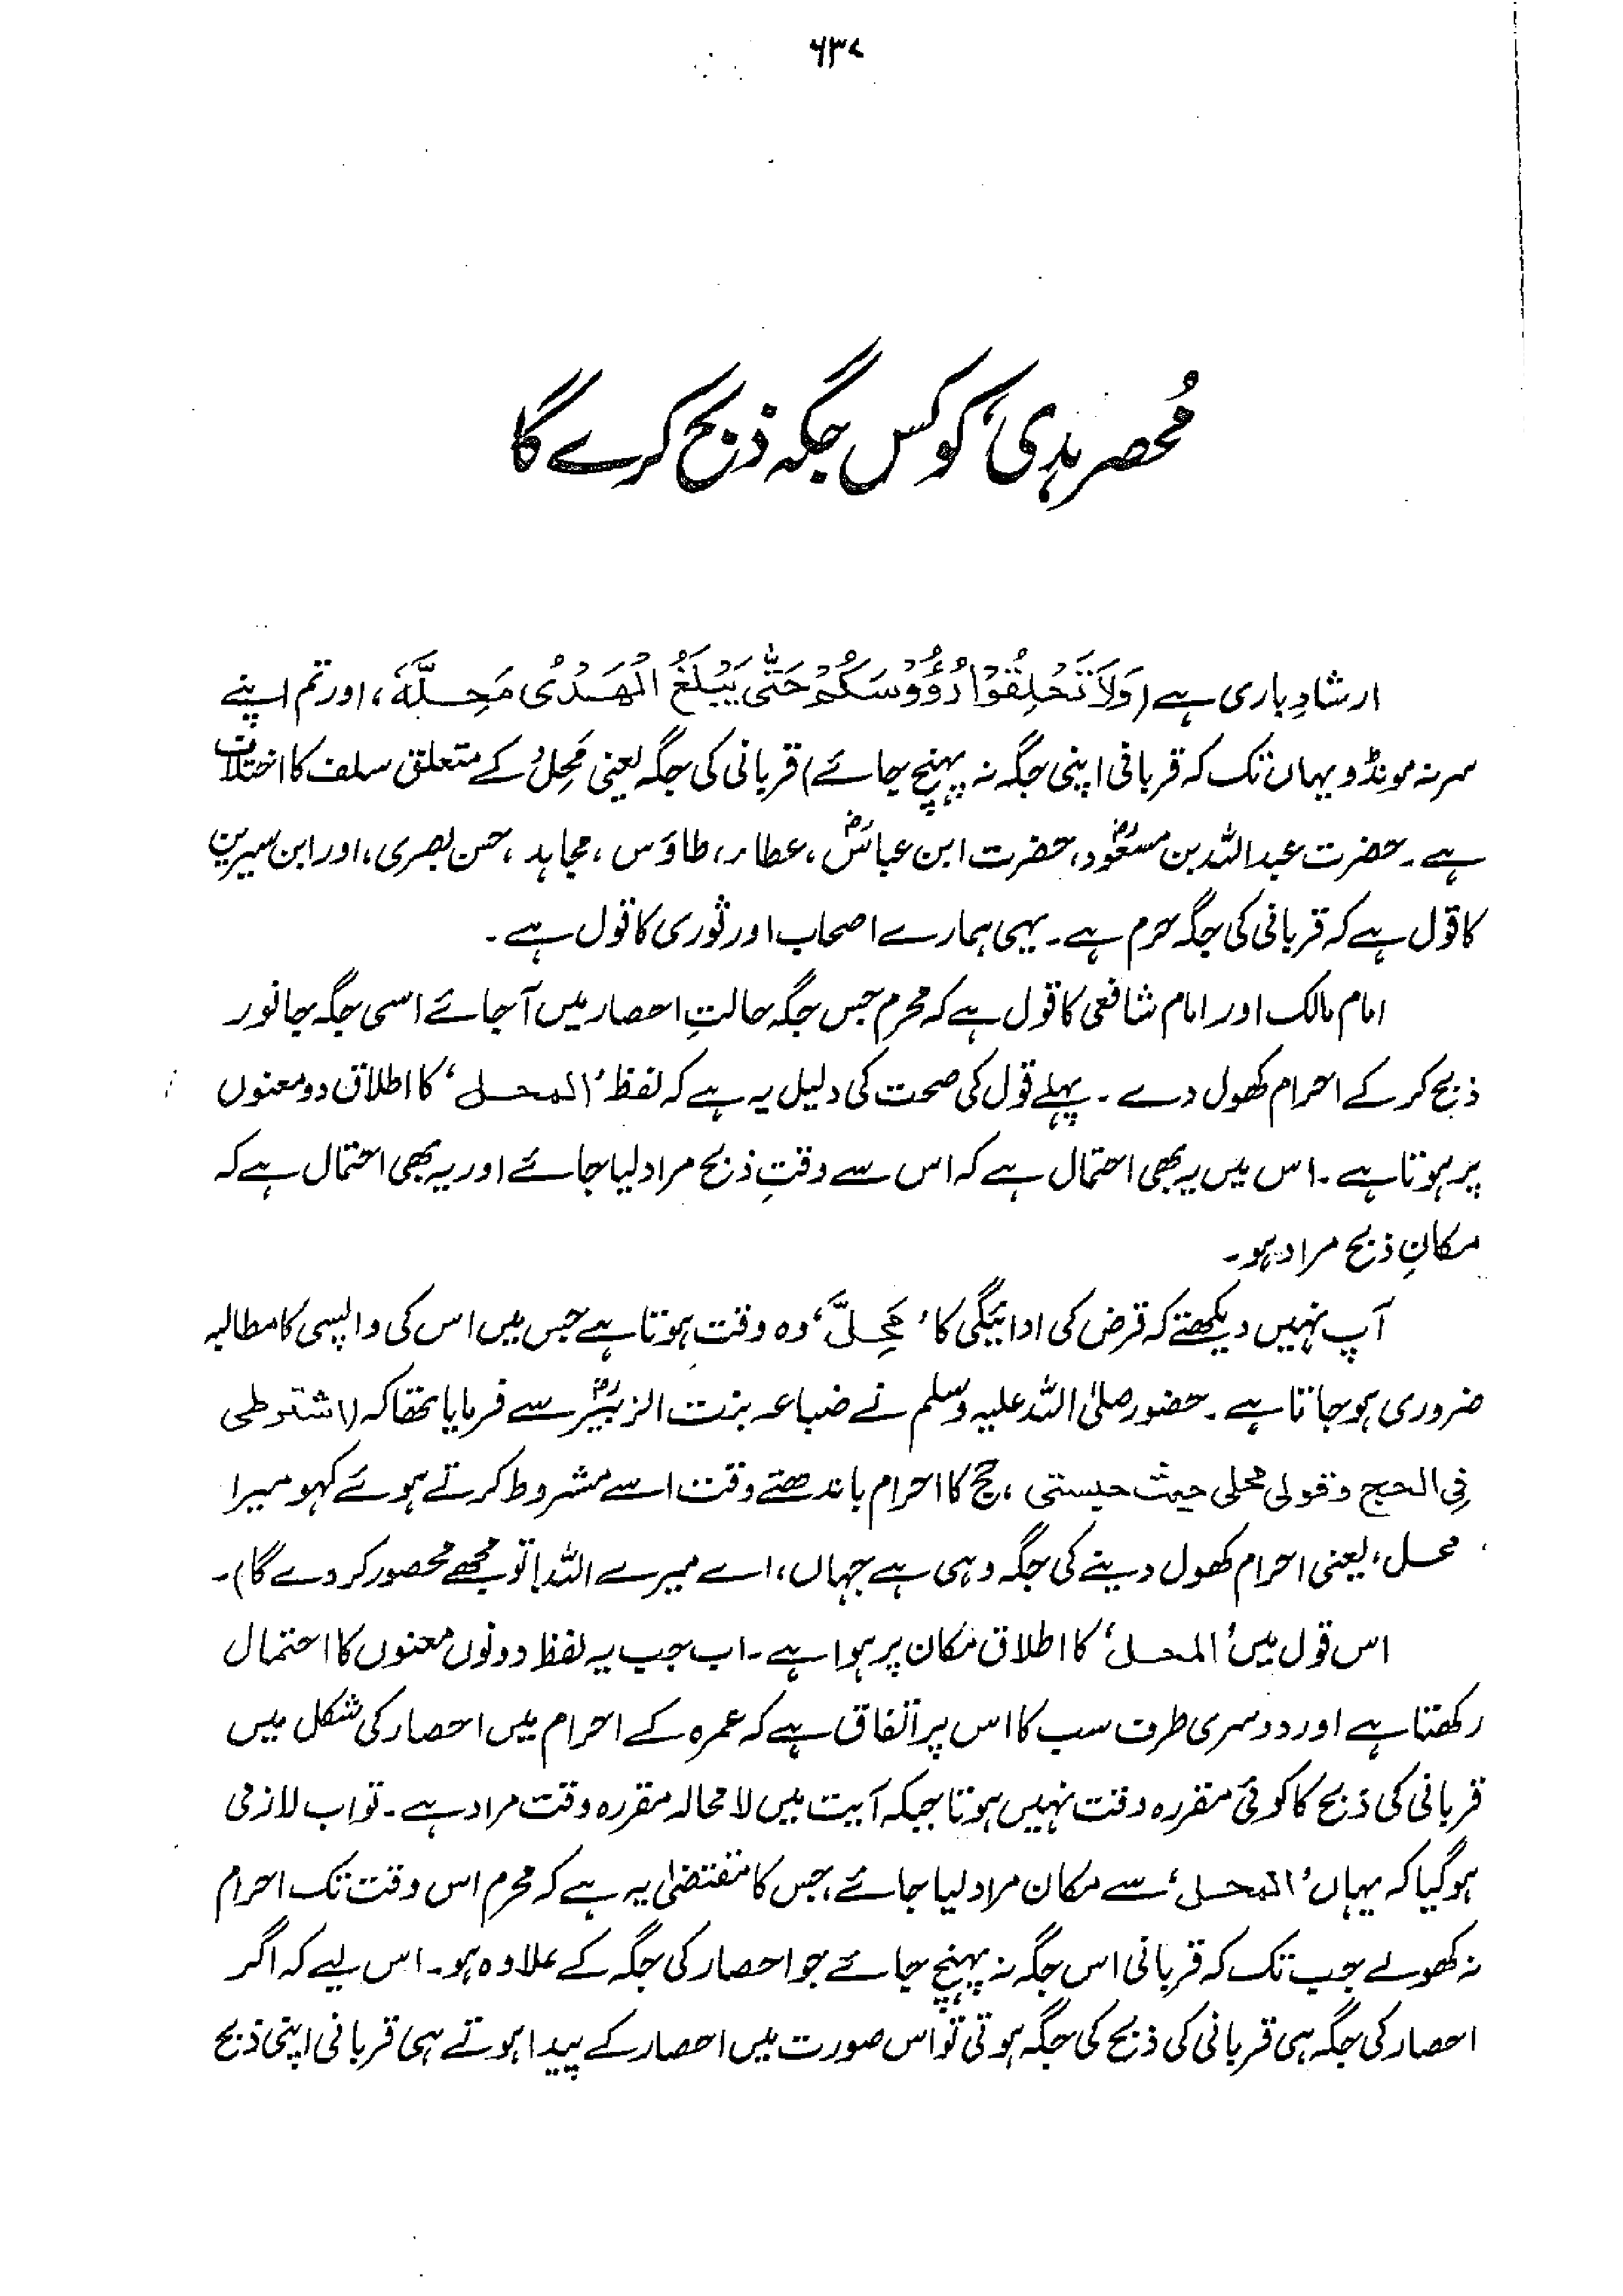 ۶۳۷
مُحصر ہدی، کو کس جگہ ذبح کرے گا
ارشادِ باری ہے (وَلَا تَحْلِقُوْا رُؤُوْسَكُمْ حَتّٰى يَبْلُغَ الْهَدْىُ مَحِلَّهٗ، اور تم اپنے
سر نہ مونڈو یہاں تک کہ قربانی اپنی جگہ نہ پہنچ جائے) قربانی کی جگہ یعنی مَحِلُّ کے متعلق سلف کا اختلاف
ہے۔ حضرت عبداللہ بن مسعودؓ، حضرت ابن عباسؓ، عطاء، طاؤس، مجاہد، حسن بصری، اور ابن سیرین
کا قول ہے کہ قربانی کی جگہ حرم ہے۔ یہی ہمارے اصحاب اور ثوری کا قول ہے۔
امام مالک اور امام شافعی کا قول ہے کہ محرم جس جگہ حالتِ احصار میں آجائے اسی جگہ جانور
ذبح کر کے احرام کھول دے۔ پہلے قول کی صحت کی دلیل یہ ہے کہ لفظ 'المحل' کا اطلاق دو معنوں
پر ہوتا ہے۔ اس میں یہ بھی احتمال ہے کہ اس سے وقتِ ذبح مراد لیا جائے اور یہ بھی احتمال ہے کہ
مکانِ ذبح مراد ہو۔
آپ نہیں دیکھتے کہ قرض کی ادائیگی کا 'مَحِلَّ' وہ وقت ہوتا ہے جس میں اس کی واپسی کا مطالبہ
ضروری ہو جاتا ہے۔ حضور صلی اللہ علیہ وسلم نے ضباعہ بنت الزبیرؓ سے فرمایا تھا کہ (اشترطی
فِی الحج وقولی محلی حیث حبستنی، حج کا احرام باندھتے وقت اسے مشروط کرتے ہوئے کہو میرا
محل، یعنی احرام کھول دینے کی جگہ وہی ہے جہاں، اے میرے اللہ! تو مجھے محصور کر دے گا)۔
اس قول میں 'المحل' کا اطلاق مکان پر ہوا ہے۔ اب جب یہ لفظ دونوں معنوں کا احتمال
رکھتا ہے اور دوسری طرف سب کا اس پر اتفاق ہے کہ عمرہ کے احرام میں احصار کی شکل میں
قربانی کی ذبح کا کوئی مقررہ وقت نہیں ہوتا جبکہ آیت میں لامحالہ مقررہ وقت مراد ہے۔ تو اب لازمی
ہو گیا کہ یہاں 'المحل' سے مکان مراد لیا جائے، جس کا مقتضیٰ یہ ہے کہ محرم اس وقت تک احرام
نہ کھولے جب تک کہ قربانی اس جگہ نہ پہنچ جائے جو احصار کی جگہ کے علاوہ ہو۔ اس لیے کہ اگر
احصار کی جگہ ہی قربانی کی ذبح کی جگہ ہوتی تو اس صورت میں احصار کے پیدا ہوتے ہی قربانی اپنی ذبح